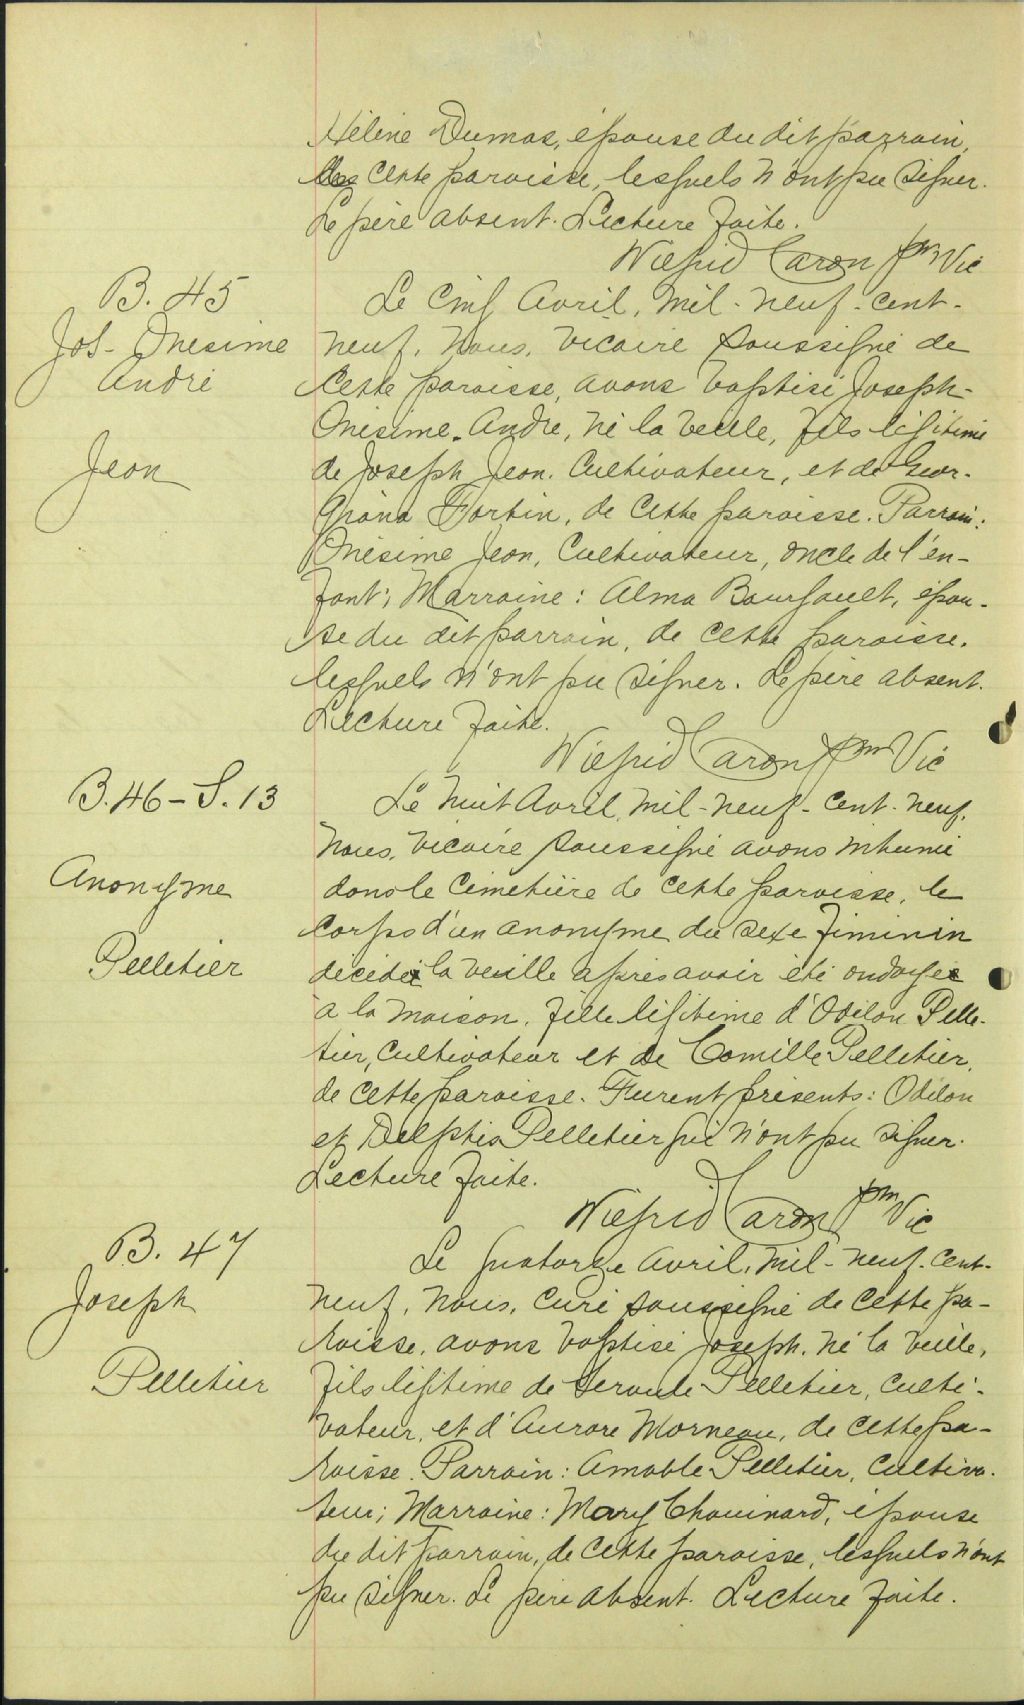 Hélène Dumas, épouse du dit parrain,
de cette paroisse, lesquels n'ont pu signer.
Le père absent. Lecture faite.
Wilfrid Caron ptre Vic
B. 45
Jos-Onesime
André
Jean
Le cinq Avril, mil-neuf-cent-
neuf, Nous, vicaire soussigné de
cette paroisse, avons baptisé Joseph-
Onésime-André, né la veille, fils légitime
de Joseph Jean, Cultivateur, et de Geor-
giana Fortin, de cette paroisse. Parrain:
Onésime Jean, Cultivateur, oncle de l'en-
fant; Marraine: Alma Bourgault, épou-
se du dit parrain, de cette paroisse.
lesquels n'ont pu signer. Le père absent.
Lecture faite.
Wilfrid Caron ptre Vic
B. 46 - S. 13
Anonyme
Pelletier
Le huit Avril, mil-neuf-cent-neuf,
Nous, vicaire soussigné avons inhumé
dans le cimetière de cette paroisse, le
corps d'un anonyme du sexe féminin
décédé la veille après avoir été ondoyé
à la maison, fille légitime d'Odilon Pelle-
tier, cultivateur et de Camille Pelletier,
de cette paroisse. Furent présents: Odilon
et Delphis Pelletier qui n'ont pu signer.
Lecture faite.
Wilfrid Caron ptre Vic
B. 47
Joseph
Pelletier
Le quatorze Avril, mil-neuf-cent-
neuf, Nous, curé soussigné de cette pa-
roisse, avons baptisé Joseph, né la veille,
fils légitime de Pelletier, culti-
vateur, et d'Aurore Morneau, de cette pa-
roisse. Parrain: Amable Pelletier, Cultiva-
teur; Marraine: Mary Chouinard, épouse
du dit parrain, de cette paroisse, lesquels n'ont
pu signer. Le père absent. Lecture faite.